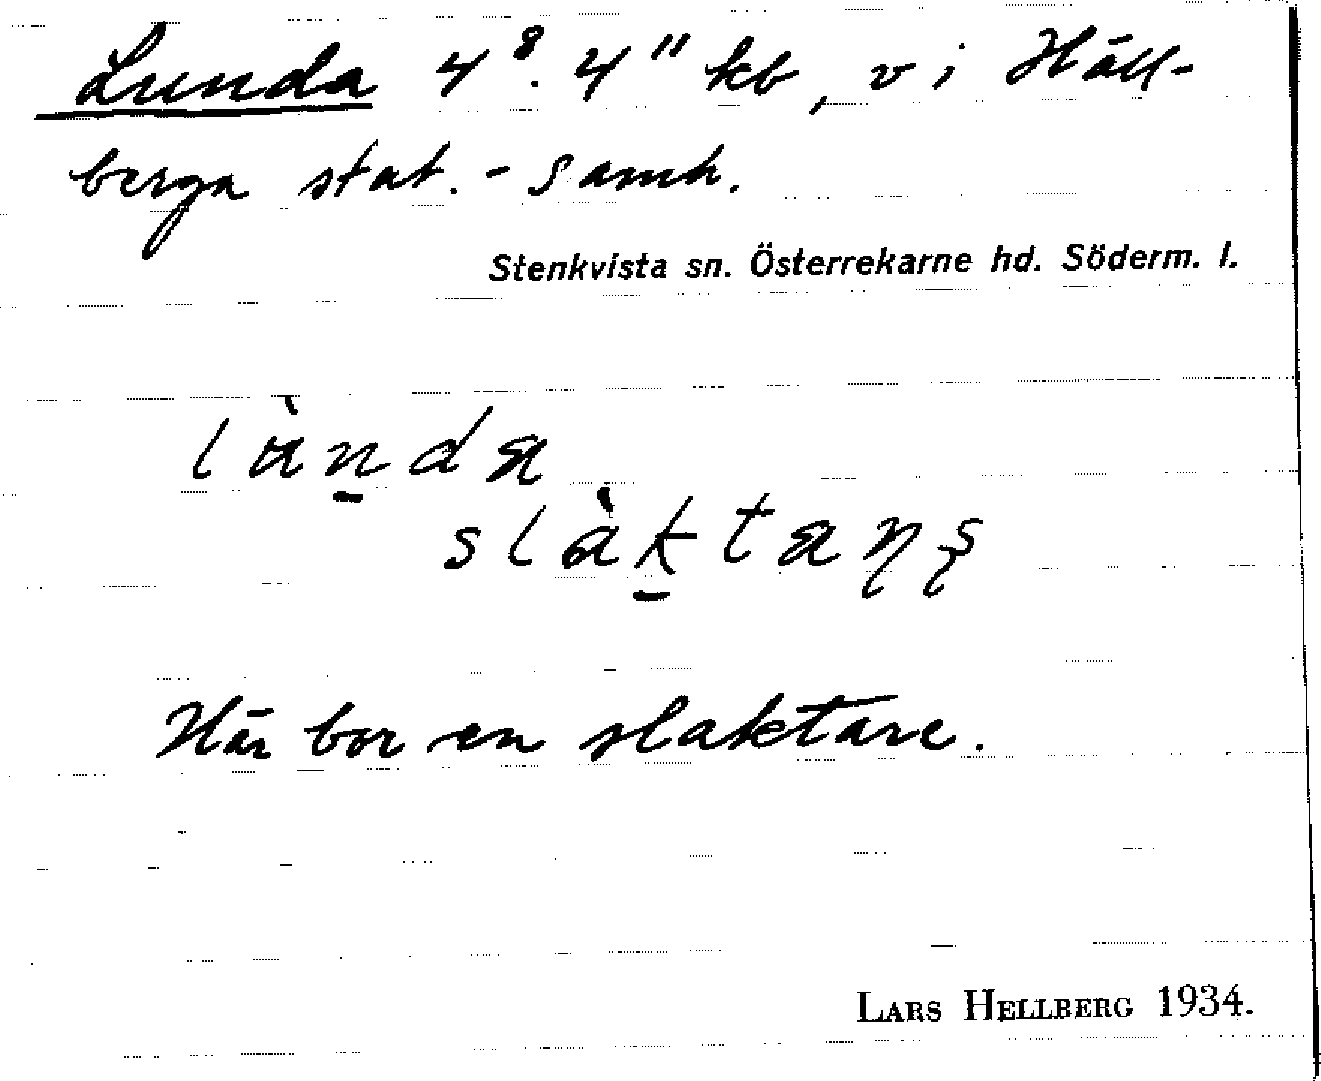 Lunda 4⁸. 4¹¹ kb, v i Häll-
berga stat.-samh.
Stenkvista sn. Österrekarne hd. Söderm. l.
Här bor en slaktare.
LARS HELLBERG 1934.